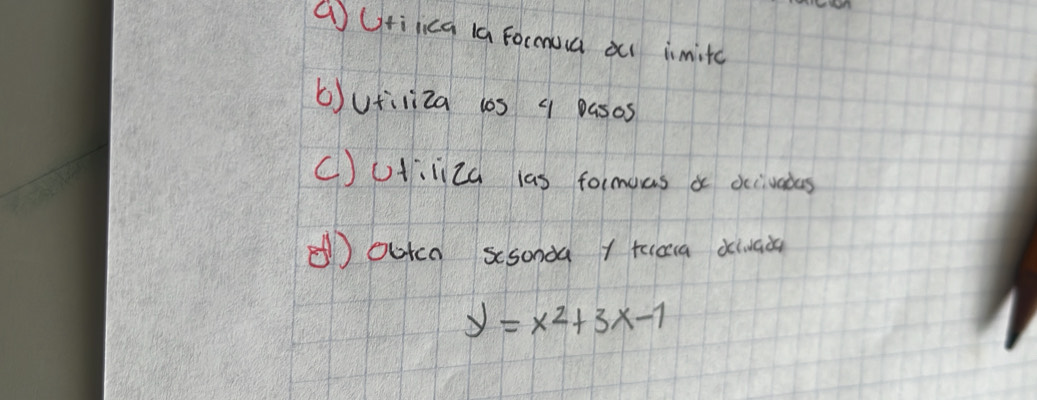 a) Utilica la formula del limite
b) Utiliza los 4 pasos
c) Utiliza las formulas de derivadas
d) Obten segonda y tercera derivada
y = x² + 3x - 1